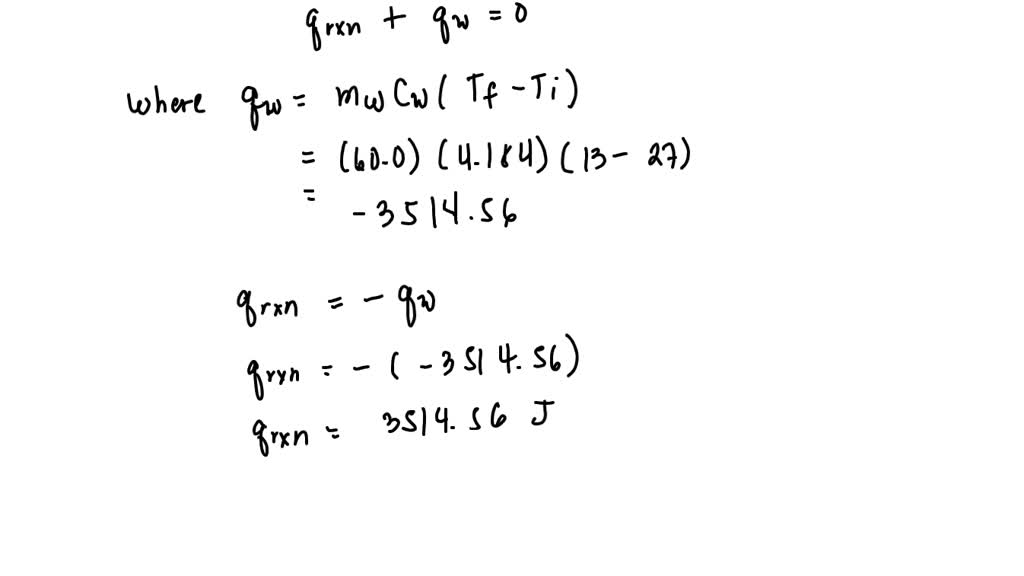 qrxn + qw = 0
where qw = mw Cw ( Tf - Ti )
= (60.0) (4.184) (13 - 27)
=
- 3514.56
qrxn = - qw
qrxn = - ( - 3514.56)
qrxn = 3514.56 J